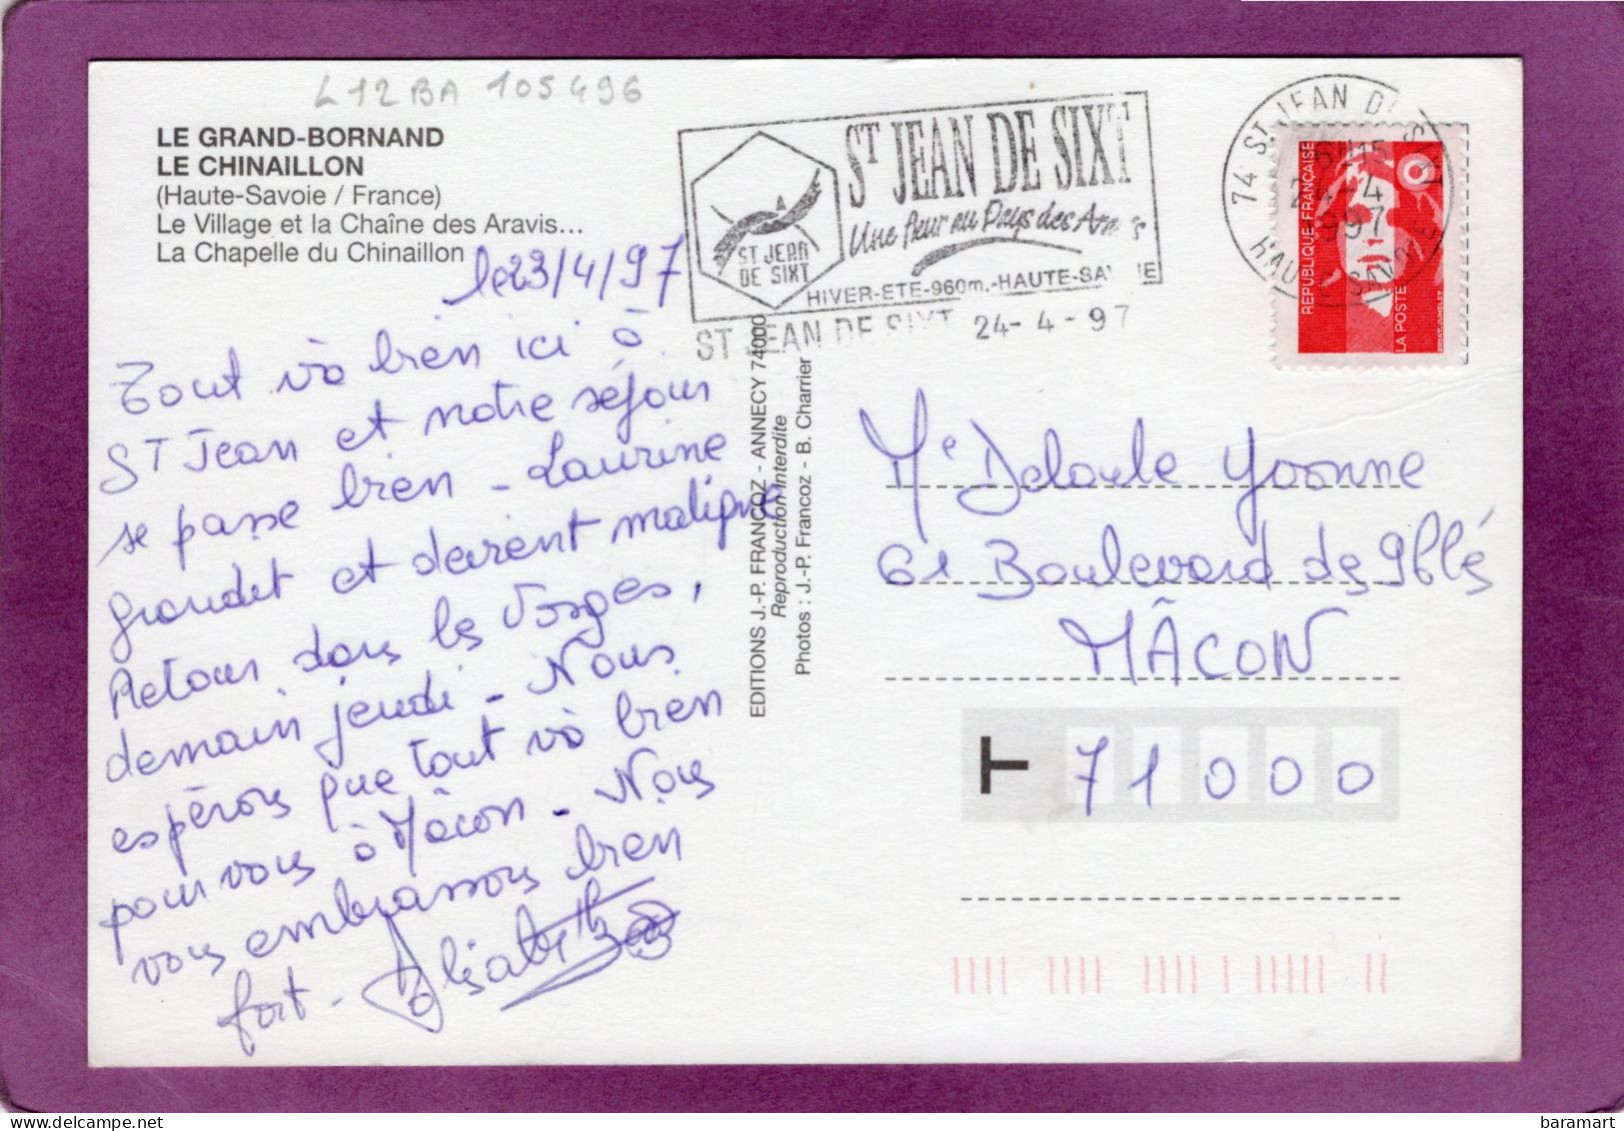 L12BA 105496
LE GRAND-BORNAND
LE CHINAILLON
(Haute-Savoie / France)
Le Village et la Chaîne des Aravis...
La Chapelle du Chinaillon
le 23/4/97
Tout và bien ici à
ST Jean et notre séjour
se passe bien - Laurine
grandit et devient maligne
Retour dans les Vosges,
demain jeudi - Nous
espérons que tout và bien
pour vous à Mâcon - Nous
vous embrassons bien
fort - Elisabeth
EDITIONS J.-P. FRANCOZ - ANNECY 74000
Reproduction interdite
Photos : J.-P. Francoz - B. Charrier
ST JEAN DE SIXT
Une fleur au Pays des Aravis
ST JEAN
DE SIXT
HIVER-ETE-960m.-HAUTE-SAVOIE
ST JEAN DE SIXT 24-4-97
74 ST JEAN DE SIXT
24-4
1997
HAUTE SAVOIE
REPUBLIQUE FRANÇAISE
LA POSTE
Me Delaule Yvonne
61 Boulevard des 9 Clés
MÂCON
T 71000
baramart